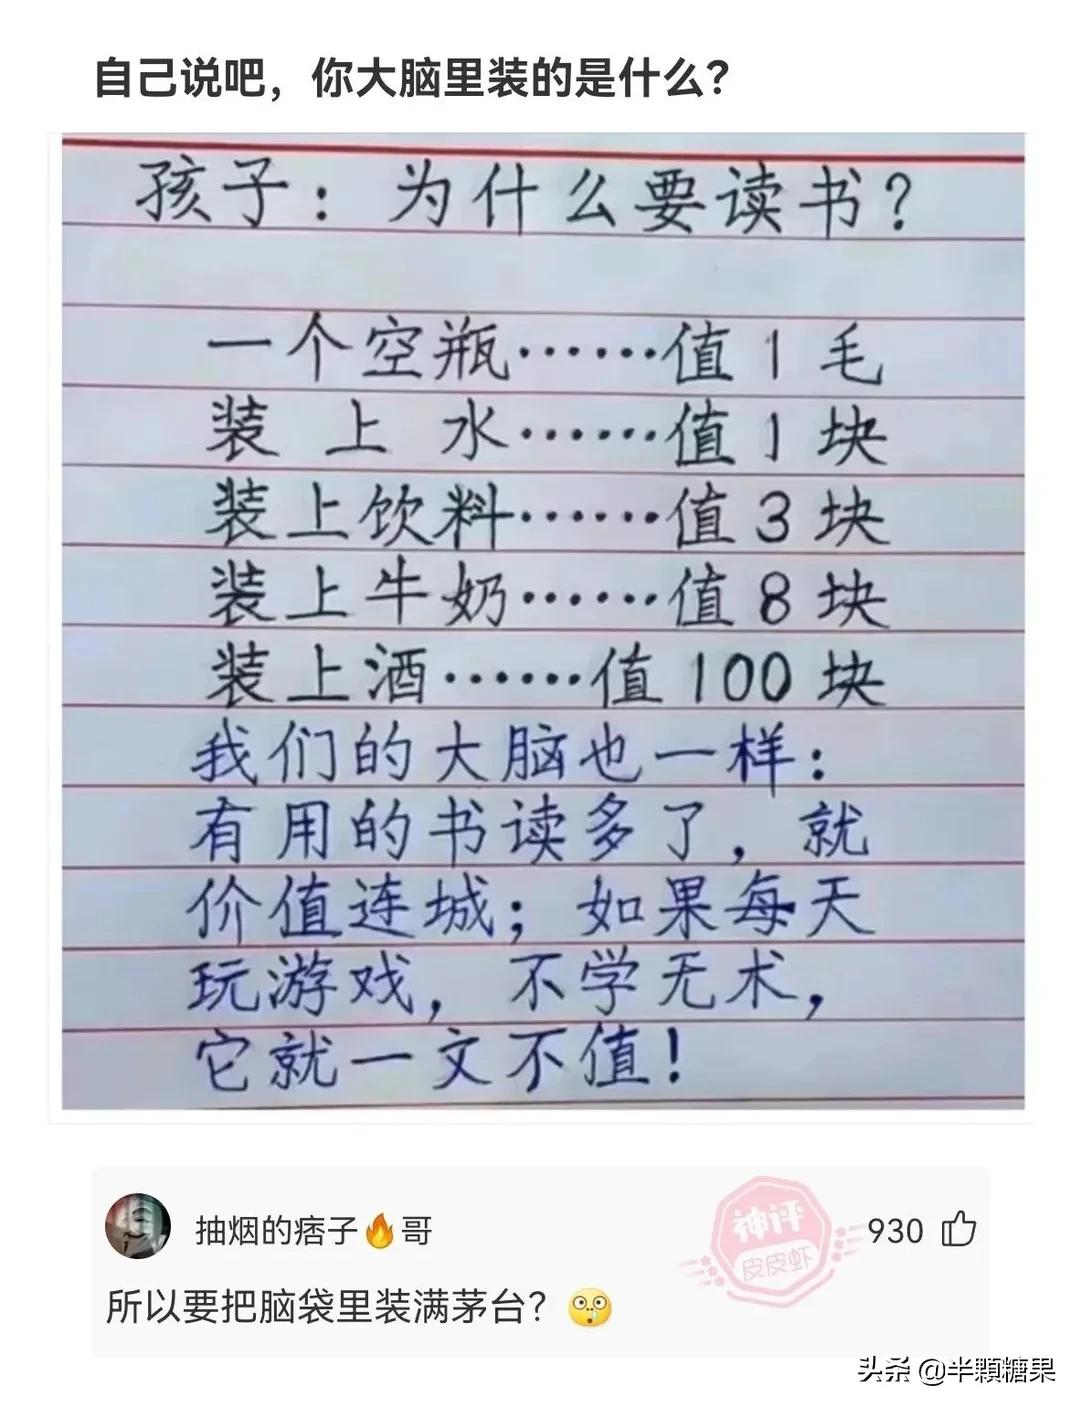 自己说吧，你大脑里装的是什么？
孩子：为什么要读书？
一个空瓶······值1毛
装上水······值1块
装上饮料······值3块
装上牛奶······值8块
装上酒······值100块
我们的大脑也一样：
有用的书读多了，就
价值连城；如果每天
玩游戏，不学无术，
它就一文不值！
抽烟的痞子🔥哥
神评
皮皮虾
930
所以要把脑袋里装满茅台？
头条 @半顆糖果